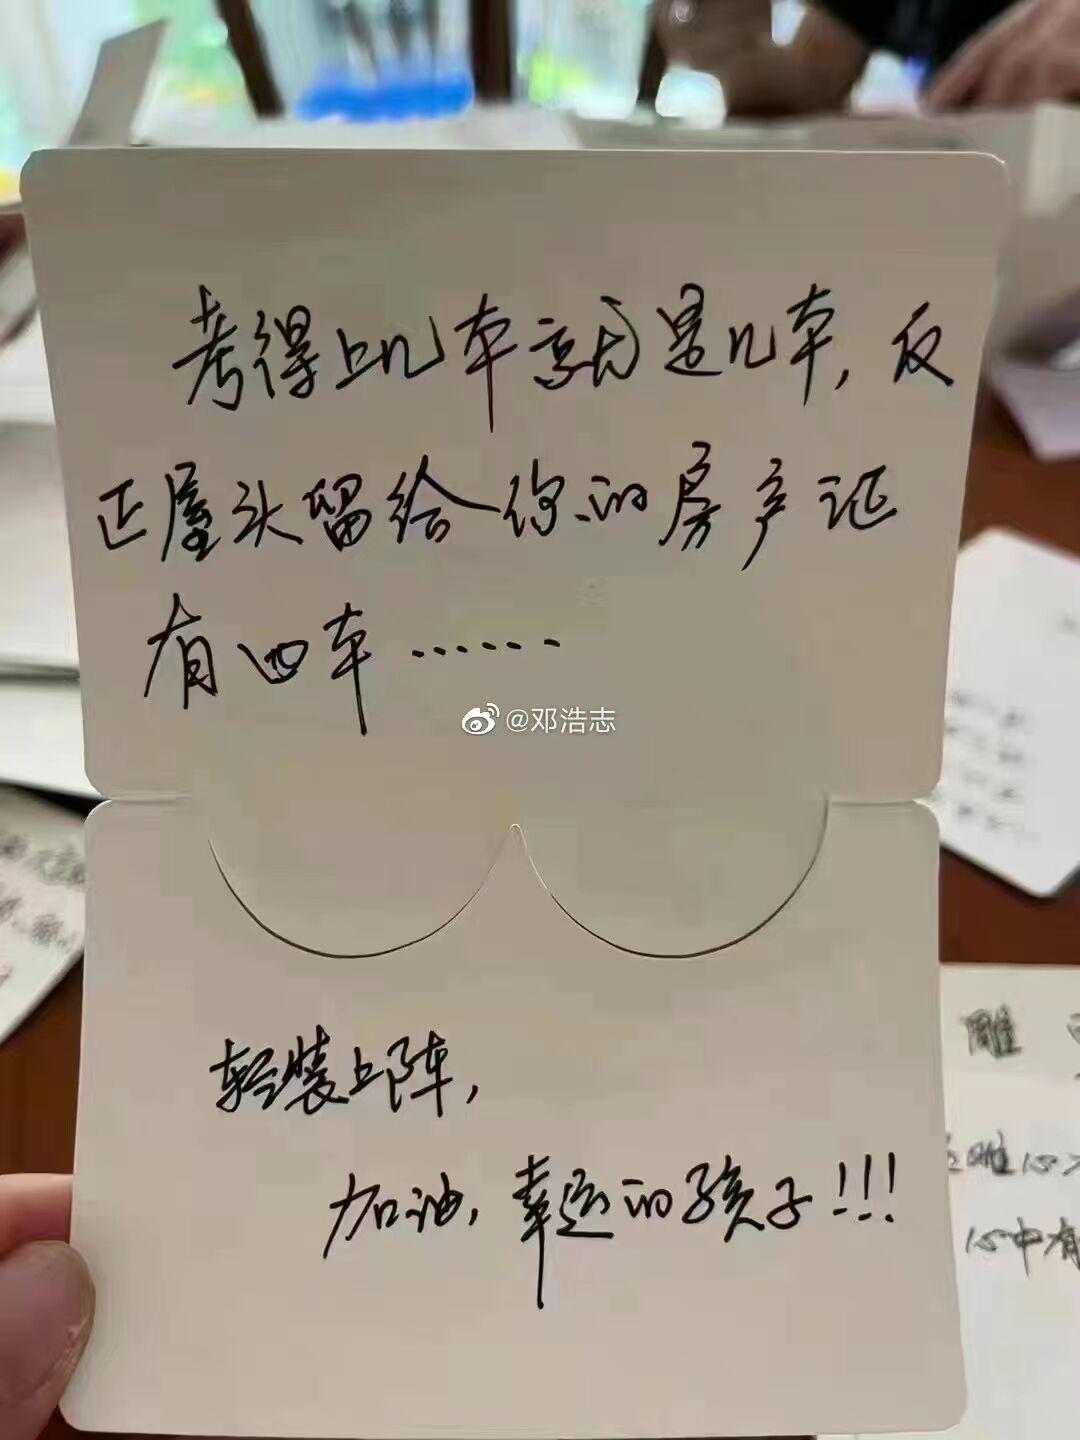 考得上几本就是几本，反
正屋头留给你的房产证
有四本……
@邓浩志
轻装上阵，
加油，幸运的孩子！！！
雕
雕心
心中有